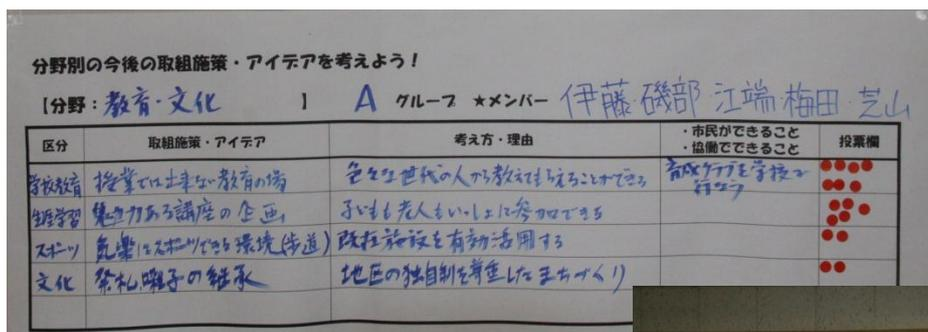 分野別の今後の取組施策・アイデアを考えよう！
【分野：教育・文化 】 A グループ ★メンバー 伊藤・磯部・江端・梅田・芝山
区分 取組施策・アイデア 考え方・理由 ・市民ができること ・協働でできること 投票欄
学校教育 授業では出来ない教育の場 色々な世代の人から教えてもらえることができる 育成クラブを学校で行なう
生涯学習 魅力ある講座の企画 子どもも老人もいっしょに参加できる
スポーツ 気楽にスポーツできる環境(歩道) 既存施設を有効活用する
文化 祭礼、囃子の継承 地区の独自制を尊重したまちづくり